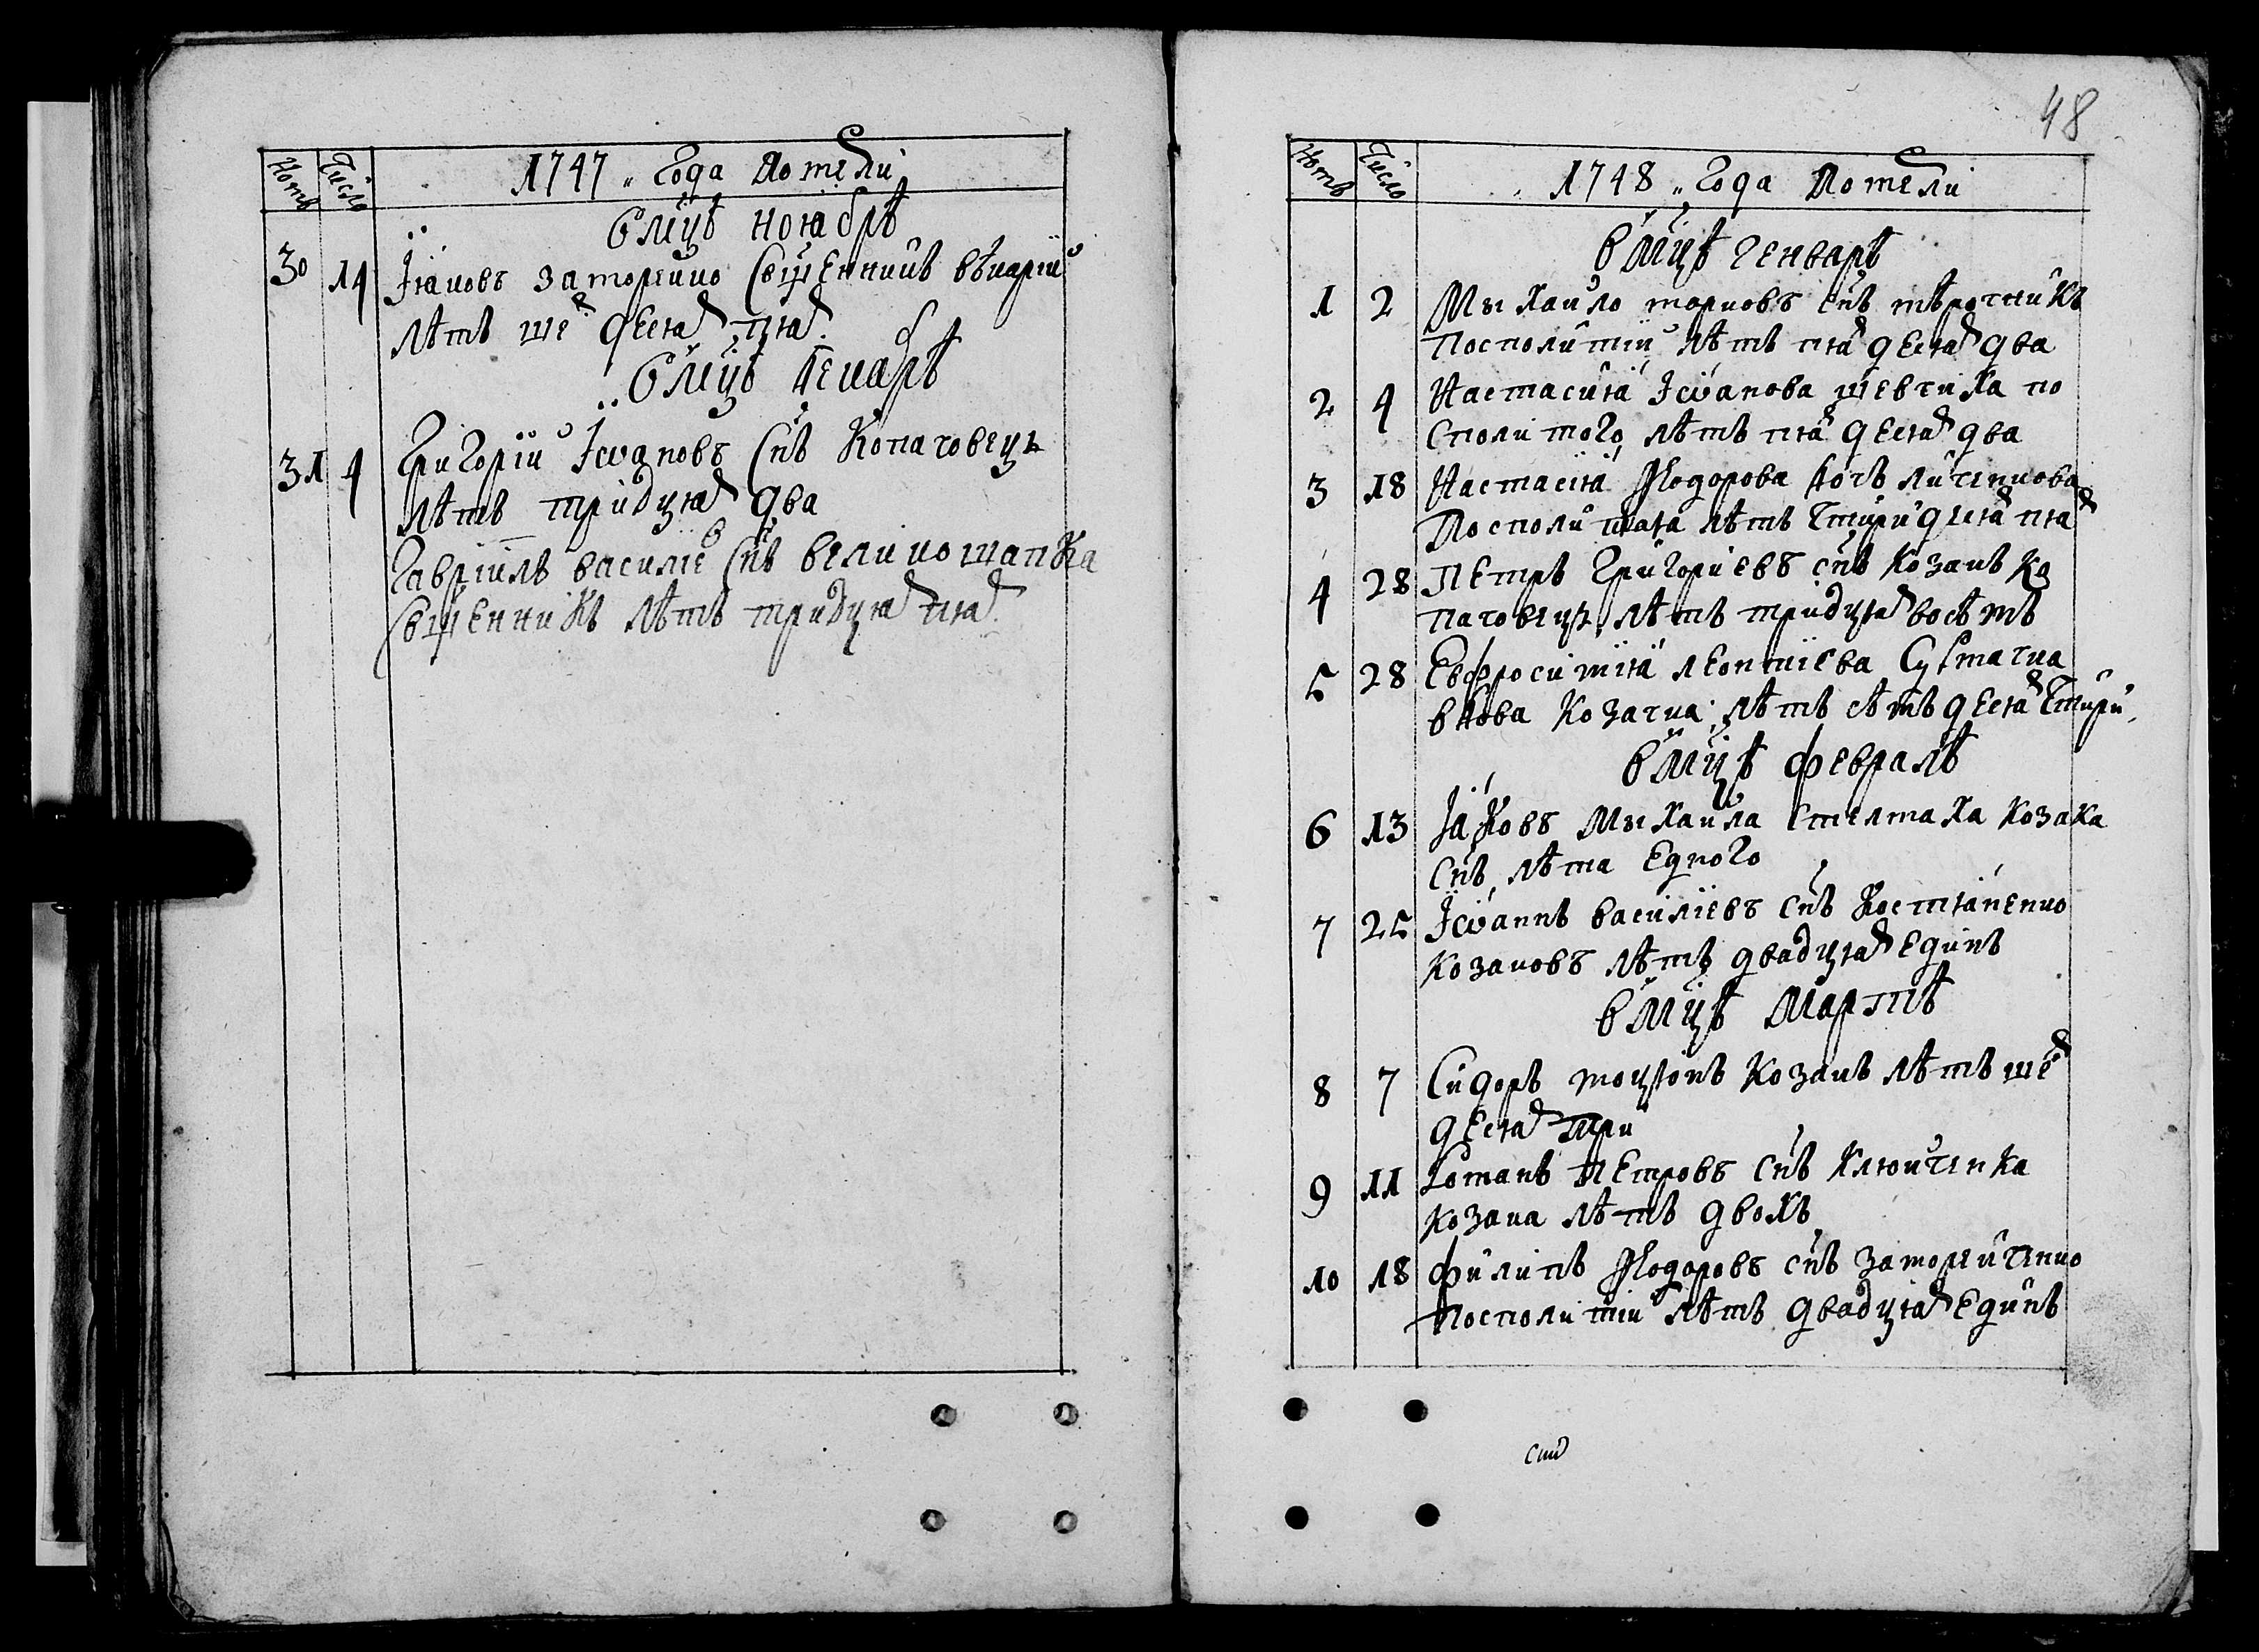 Нотъ Число 1747 „ Года Помeрли
В мцѣ ноябрѣ
30 14 Іяковъ Заторскио Сщенникъ вѣкарій
лѣтъ шедесят пят.
В мцѣ декабрѣ
31 4 Григорій Іѡановъ снъ Копачовецъ
лѣтъ тридцят два
Гавріилъ василіев снъ великошапка
Сщенникъ лѣтъ тридцят пят.
48
Нотъ Число 1748 „ Года Померли
В мцѣ генварѣ
1 2 Михайло снъ
Посполитій лѣтъ пядесят два
2 4 Настасия Іѡанова шевчиха по
сполитого лѣтъ пядесят два
3 18 Настасія Ѳедорова дочъ
Посполитая лѣтъ чтиридесят пят
4 28 Петръ Григориевъ снъ козакъ ко
пачовецъ, лѣтъ тридцят восѣмъ
5 28 Евфросимія леонтіева
вдова козачка лѣтъ сѣмъдесят чтири
В мцѣ февралѣ
6 13 Іяковъ Михайла стелмаха козака
снъ, лѣта едного
7 25 Іѡаннъ василіевъ снъ Костяненко
козаковъ лѣтъ двадцят единъ
В мцѣ мартѣ
8 7 Сидоръ козакъ лѣтъ ше
десят три
9 11 Романъ Петровъ снъ Ключенка
козака лѣтъ двохъ
10 18 Филипъ Ѳедоровъ снъ
Посполитій лѣтъ двадцят единъ